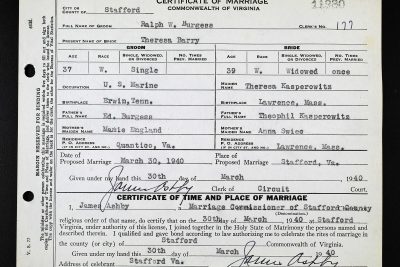 CERTIFICATE OF MARRIAGE
CITY OR COUNTY OF Stafford COMMONWEALTH OF VIRGINIA
FULL NAME OF GROOM Ralph W. Burgess CLERK'S NO. 177
PRESENT NAME OF BRIDE Theresa Barry
GROOM BRIDE
AGE RACE SINGLE, WIDOWED, OR DIVORCED NO. TIMES PREV. MARRIED AGE RACE SINGLE, WIDOWED, OR DIVORCED NO. TIMES PREV. MARRIED
37 W. Single 39 W. Widowed once
OCCUPATION U. S. Marine MAIDEN NAME Theresa Kasperowitz
BIRTHPLACE Erwin, Tenn. BIRTHPLACE Lawrence, Mass.
FATHER'S FULL NAME Ed. Burgess FATHER'S FULL NAME Theophil Kasperowitz
MOTHER'S MAIDEN NAME Mamie England MOTHER'S MAIDEN NAME Anna Swicc
RESIDENCE P. O. ADDRESS (IF IN CITY, ST. AND NO.) Quantico, Va. RESIDENCE P. O. ADDRESS (IF IN CITY, ST. AND NO.) Lawrence, Mass.
Date of Proposed Marriage March 30, 1940 Place of Proposed Marriage Stafford, Va.
Given under my hand this 30th day of March 1940
James Ashby Clerk of Circuit Court
CERTIFICATE OF TIME AND PLACE OF MARRIAGE
I, James Ashby a Marriage Commissioner of Stafford County
religious order of that name, do certify that on the 30th day of March 1940 at Stafford
Virginia, under authority of this license, I joined together in the Holy State of Matrimony the persons named
and described therein. I qualified and gave bond according to law authorizing me to celebrate the rites of marriage in the
county (or city) of Stafford Commonwealth of Virginia.
Given under my hand this 30th day of March 1940
Address of celebrant Stafford Va. James Ashby
MARGIN RESERVED FOR BINDING
V. S. 77